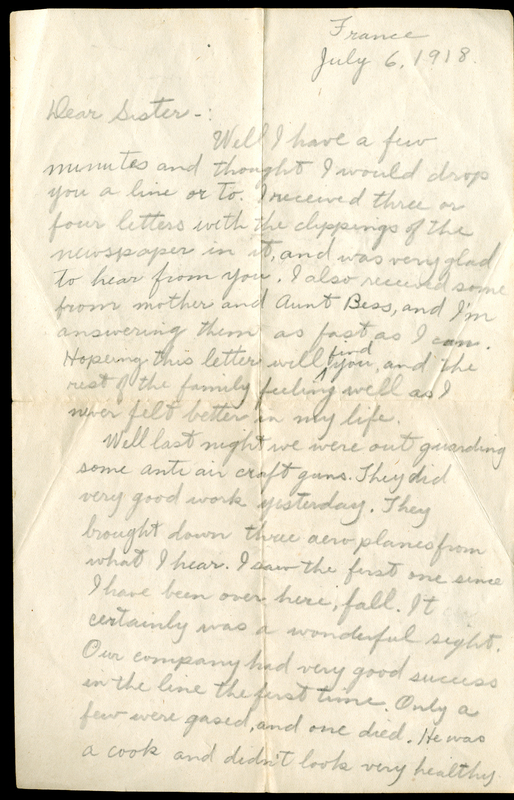 France
July 6, 1918.
Dear Sister -:
Well I have a few
minutes and thought I would drop
you a line or to. I received three or
four letters with the clippings of the
newspaper in it, and was very glad
to hear from you. I also received some
from mother and Aunt Bess, and I'm
answering them as fast as I can.
Hopeing this letter will find you, and the
rest of the family feeling well as I
never felt better in my life.
Well last night we were out guarding
some anti air craft guns. They did
very good work yesterday. They
brought down three aero planes from
what I hear. I saw the first one since
I have been over here, fall. It
certainly was a wonderful sight.
Our company had very good success
in the line the first time. Only a
few were gased, and one died. He was
a cook and didn't look very healthy.